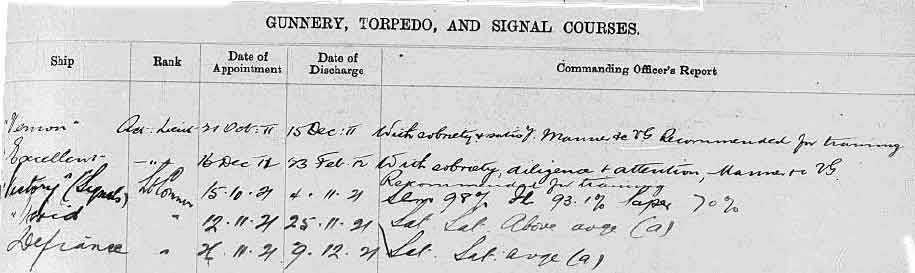 GUNNERY, TORPEDO, AND SIGNAL COURSES.
Ship Rank Date of Appointment Date of Discharge Commanding Officer's Report
"Vernon" Act: Lieut 21 Oct: 11 15 Dec: 11 With sobriety & satisfy. Manner &c VG Recommended for training
Excellent -"- 16 Dec 11 23 Feb. 12 With sobriety, diligence & attention, Manner &c VG.
Recommended for training
"Victory" (Signals) Lt Comm 15.10.21 4.11.21 98% 93.1% Paper 70%
" 12.11.21 25.11.21 Sat. Sat. Above avge (a)
Defiance " 11.21 9.12.21 Sat. Sat. avge (a)